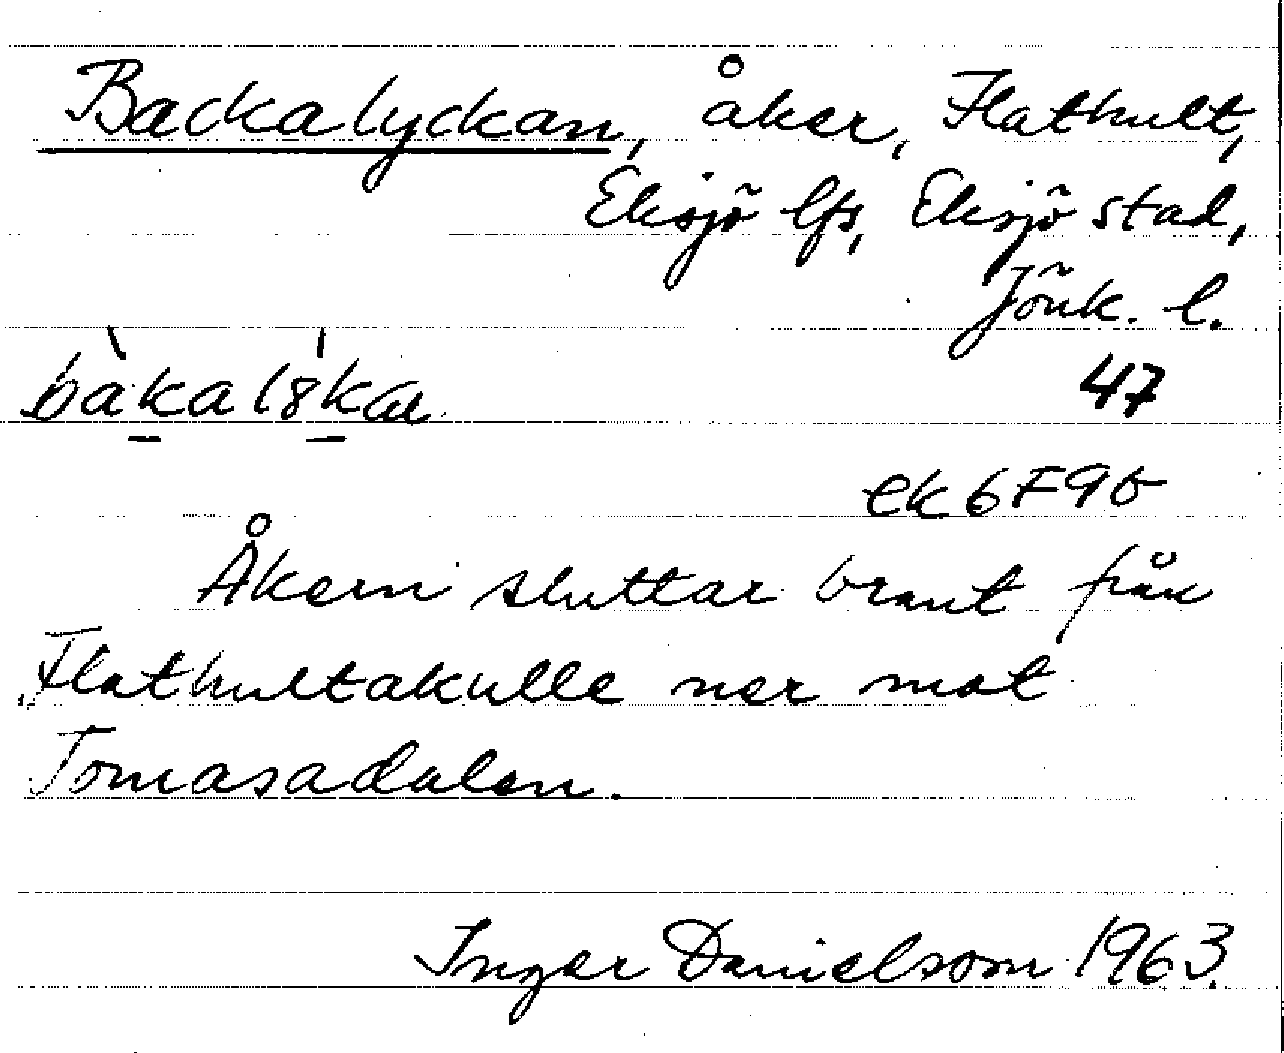 Backalyckan, åker, Flathult,
Eksjö lfs, Eksjö stad,
Jönk. l.
bàkalỳka
47
ek6F9b
Åkern sluttar brant från
Flathultakulle ner mot
Tomasadalen.
Inger Danielsson 1963.